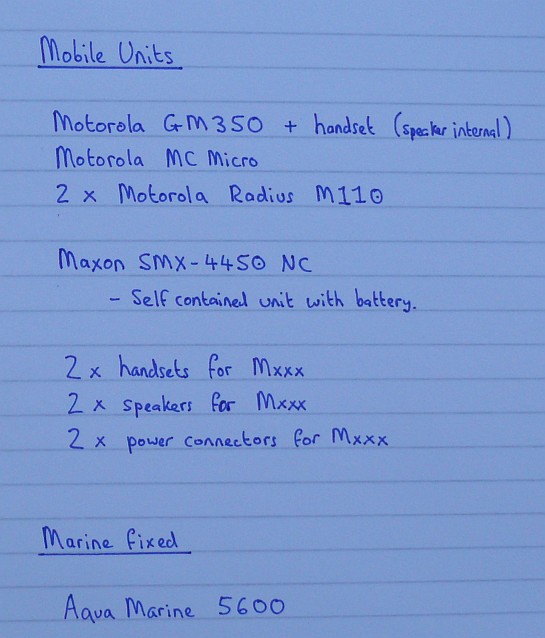 Mobile Units
Motorola GM350 + handset (speaker internal)
Motorola MC Micro
2 x Motorola Radius M110
Maxon SMX-4450 NC
- Self contained unit with battery.
2 x handsets for Mxxx
2 x speakers for Mxxx
2 x power connectors for Mxxx
Marine fixed
Aqua Marine 5600